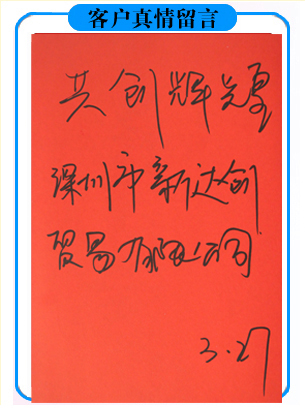 客户真情留言
共创辉煌
深圳市新达创
贸易有限公司
3.27